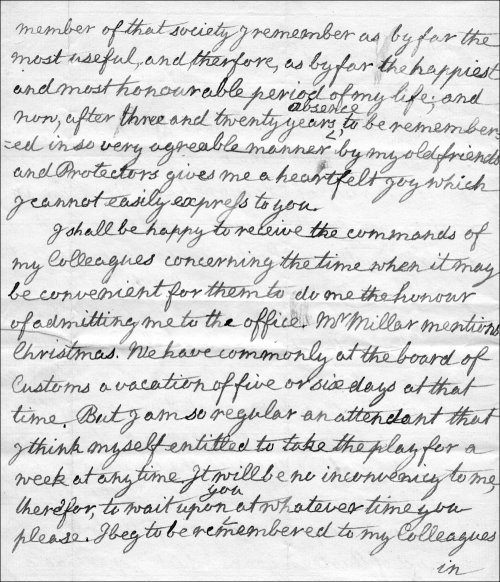 member of that society I remember as by far the
most useful, and therfore, as by far the happiest
and most honourable period of my life; and
now, after three and twenty years absence, to be remember-
=ed in so very agreable manner by my old friends
and Protectors gives me a heartfelt joy which
I cannot easily express to you.
I shall be happy to receive the commands of
my Colleagues concerning the time when it may
be convenient for them to do me the honour
of admitting me to the office. Mr Millar mentions
Christmas. We have commonly at the board of
Customs a vacation of five or six days at that
time. But I am so regular an attendant that
I think myself entitled to take the play for a
week at any time. It will be no inconvenicy to me,
therefor, to wait upon you at whatever time you
please. I beg to be remembered to my Colleagues
in